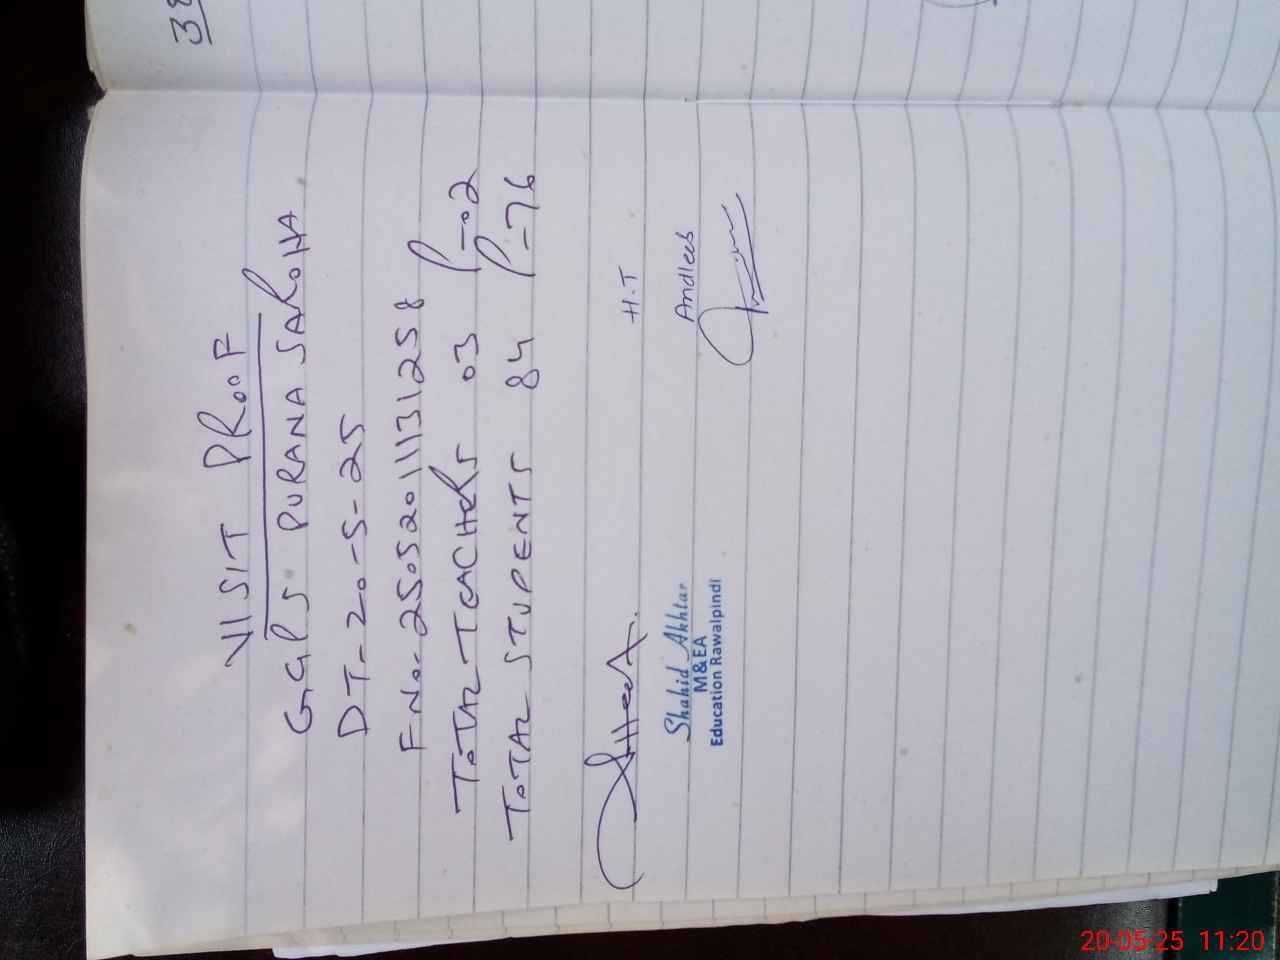 38
VISIT PROOF
GGPS PURANA SAROHA
DT-20-5-25
FNo-25052011131258
TOTAL TEACHERS 03 P-02
TOTAL STUDENTS 84 P-76
H.T
Shahid Akhtar
M&EA
Education Rawalpindi
Andleeb
20-05-25 11:20